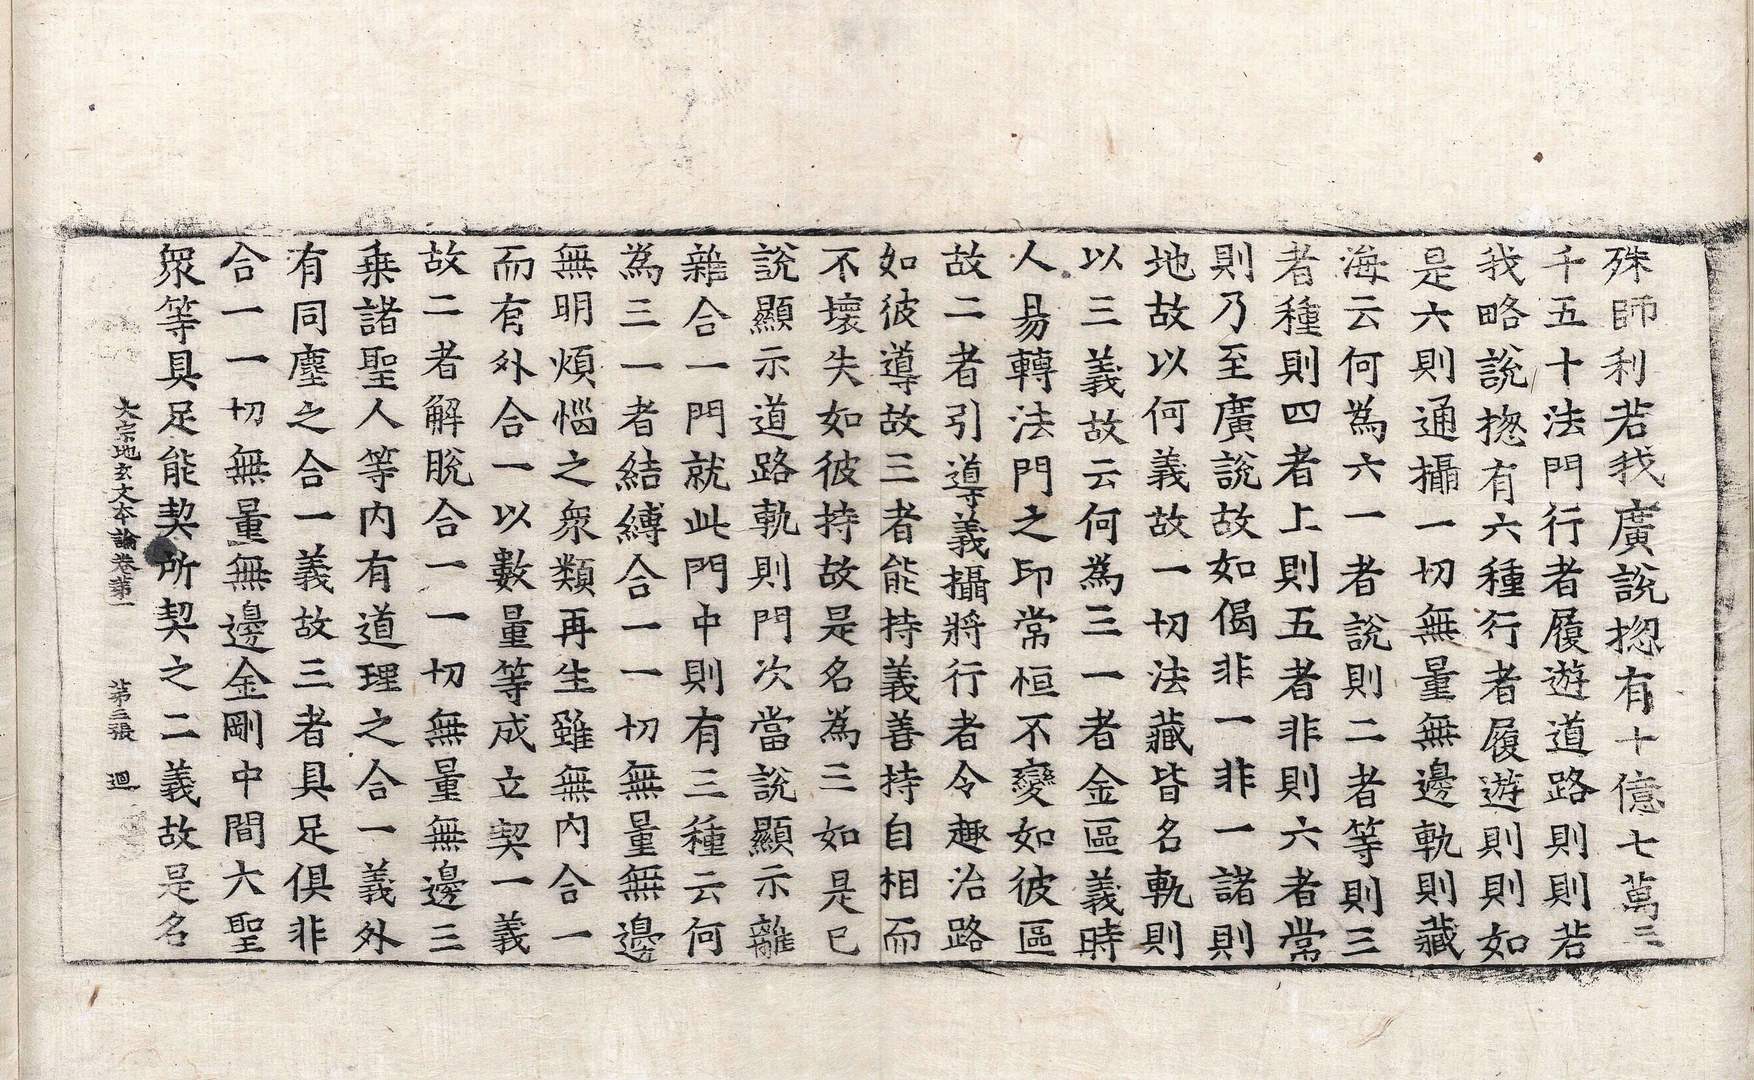 殊師利若我廣說揔有十億七萬三
千五十法門行者履遊道路則則若
我略說揔有六種行者履遊則則如
是六則通攝一切無量無邊軌則藏
海云何為六一者說則二者等則三
者種則四者上則五者非則六者常
則乃至廣說故如偈非一非一諸則
地故以何義故一切法藏皆名軌則
以三義故云何為三一者金區義時
人易轉法門之印常恒不變如彼區
故二者引導義攝將行者令趣治路
如彼導故三者能持義善持自相而
不壞失如彼持故是名為三如是已
說顯示道路軌則門次當說顯示離
雜合一門就此門中則有三種云何
為三一者結縛合一一切無量無邊
無明煩惱之衆類再生雖無內合一
而有外合一以數量等成立契一義
故二者解脫合一一切無量無邊三
乗諸聖人等內有道理之合一義外
有同塵之合一義故三者具足俱非
合一一切無量無邊金剛中間大聖
衆等具足能契所契之二義故是名
大宗地玄文本論卷第一 第三張 迴